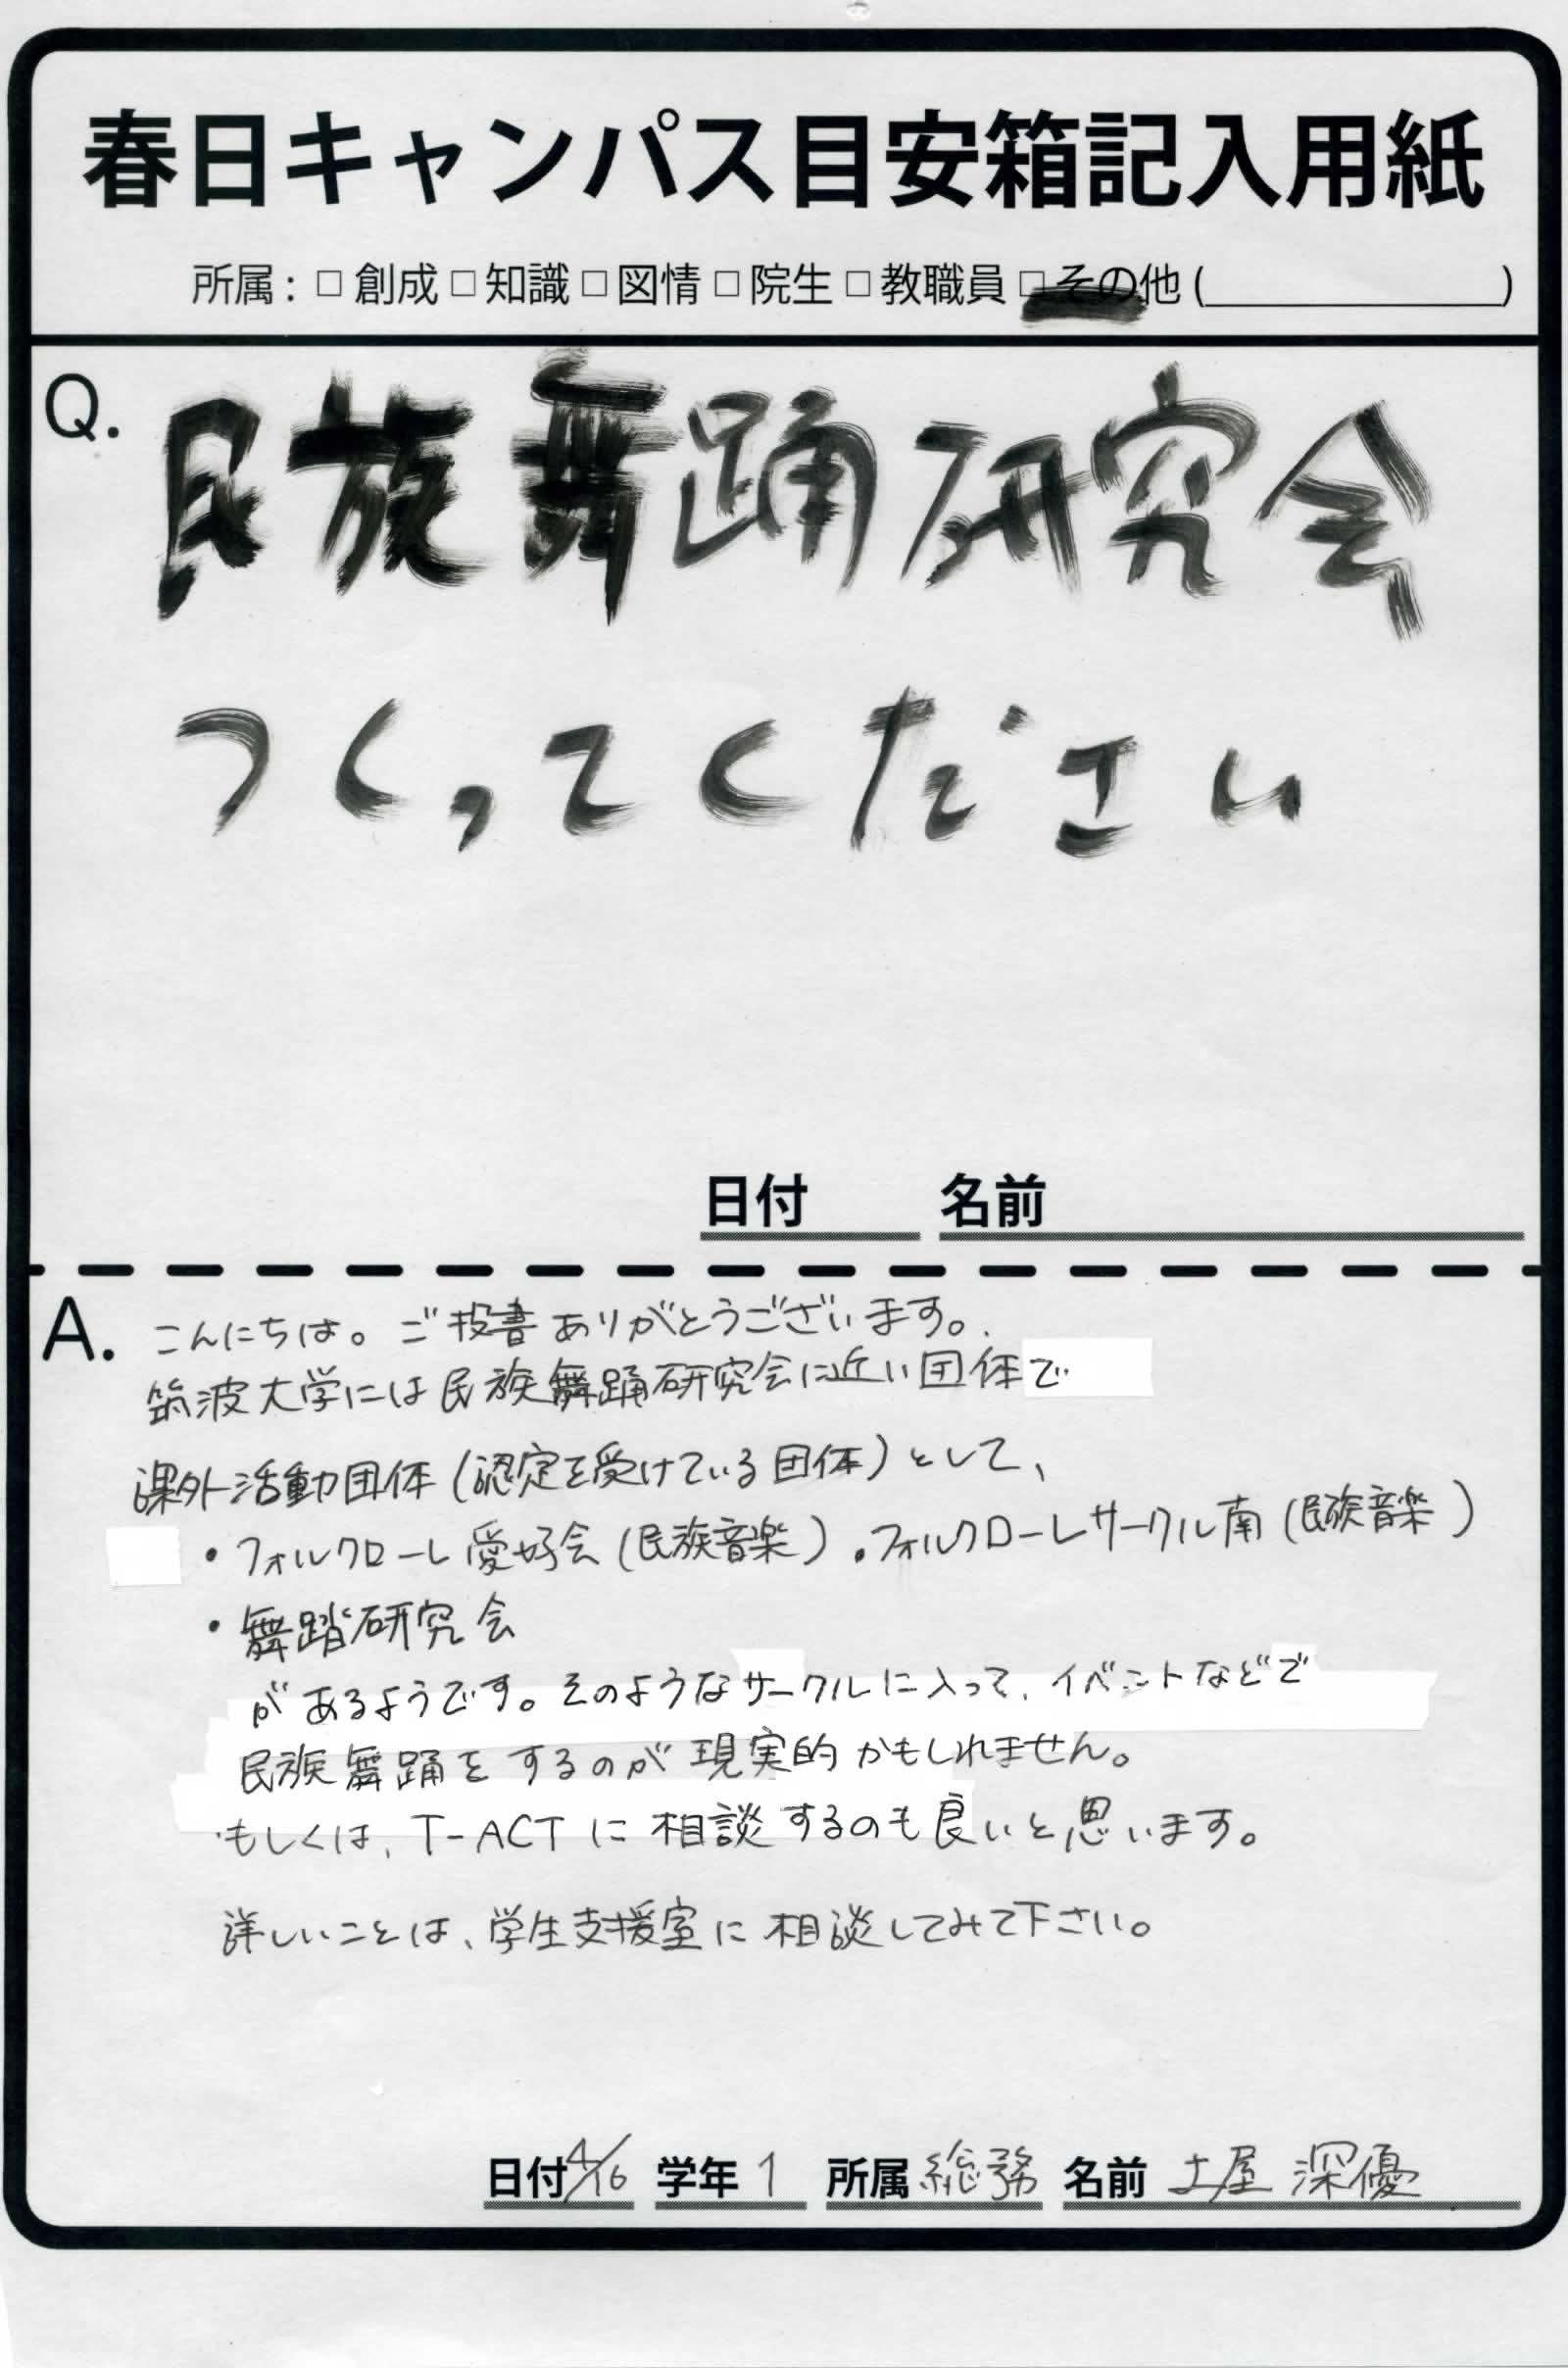 春日キャンパス目安箱記入用紙
所属:□創成□知識□図情□院生□教職員□その他(　　　　)
Q.
民族舞踊研究会
つくってください
日付　　名前
A.
こんにちは。ご投書ありがとうございます。
筑波大学には民族舞踊研究会に近い団体で
課外活動団体(認定を受けている団体)として、
・フォルクローレ愛好会(民族音楽)・フォルクローレサークル南(民族音楽)
・舞踏研究会
があるようです。そのようなサークルに入って、イベントなどで
民族舞踊をするのが現実的かもしれません。
もしくは、T-ACTに相談するのも良いと思います。
詳しいことは、学生支援室に相談してみて下さい。
日付4/16 学年1 所属総務 名前土屋深優